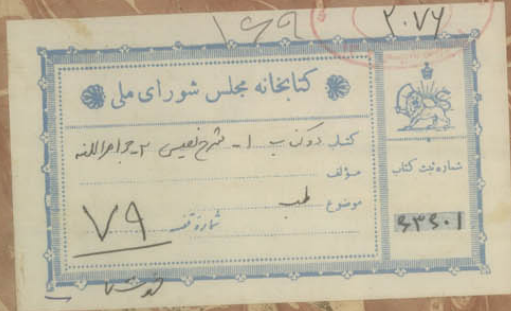 ۲۰۷۶
کتابخانه مجلس شورای ملی
کتاب دو کتاب ۱- شرح نفیسی ۲- جواهر اللغه
مؤلف
موضوع طب
شماره قفسه ۷۹
شماره ثبت کتاب
۶۳۶۰۱